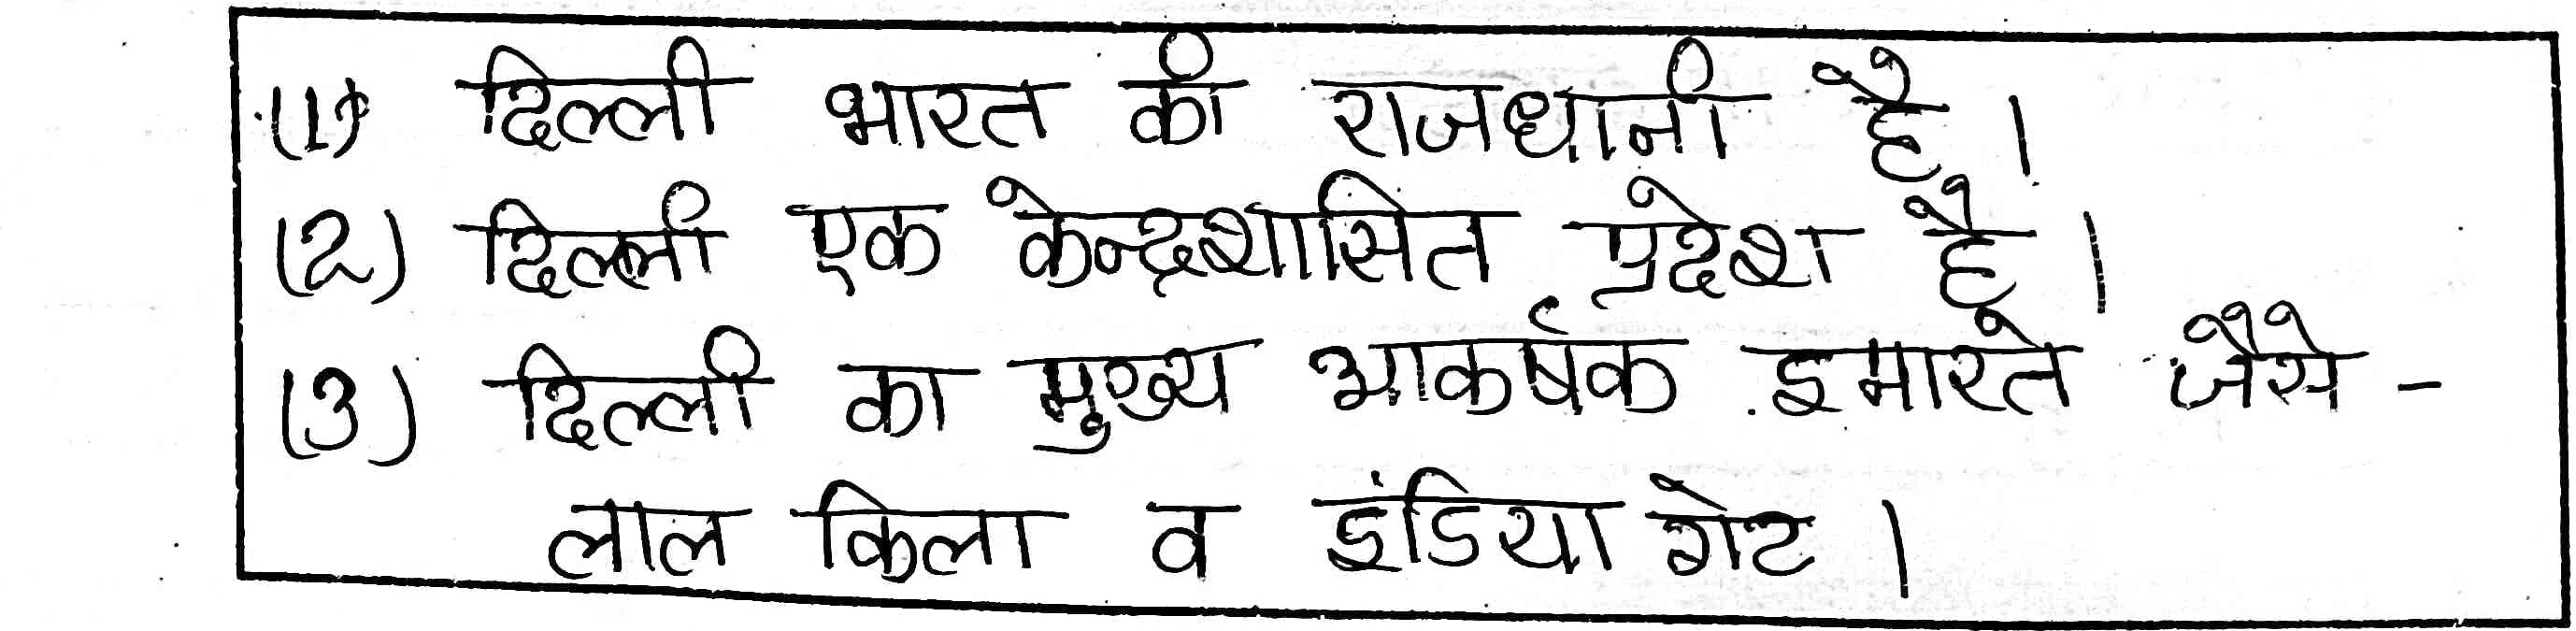 (1) दिल्ली भारत की राजधानी है।
(2) दिल्ली एक केन्द्रशासित प्रदेश है।
(3) दिल्ली का मुख्य आकर्षक इमारते जैसे -
लाल किला व इंडिया गेट।